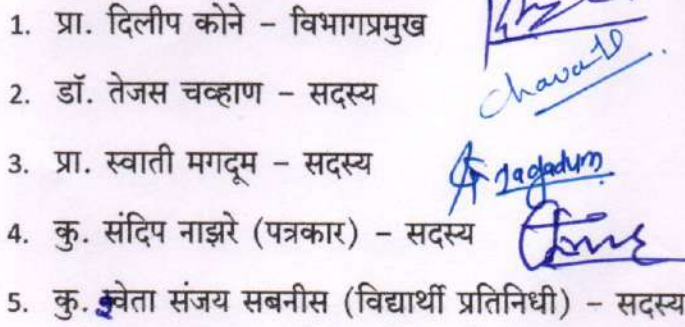 1. प्रा. दिलीप कोने – विभागप्रमुख
2. डॉ. तेजस चव्हाण – सदस्य Chavan
3. प्रा. स्वाती मगदूम – सदस्य Magadum
4. कु. संदिप नाझरे (पत्रकार) – सदस्य
5. कु. श्वेता संजय सबनीस (विद्यार्थी प्रतिनिधी) – सदस्य